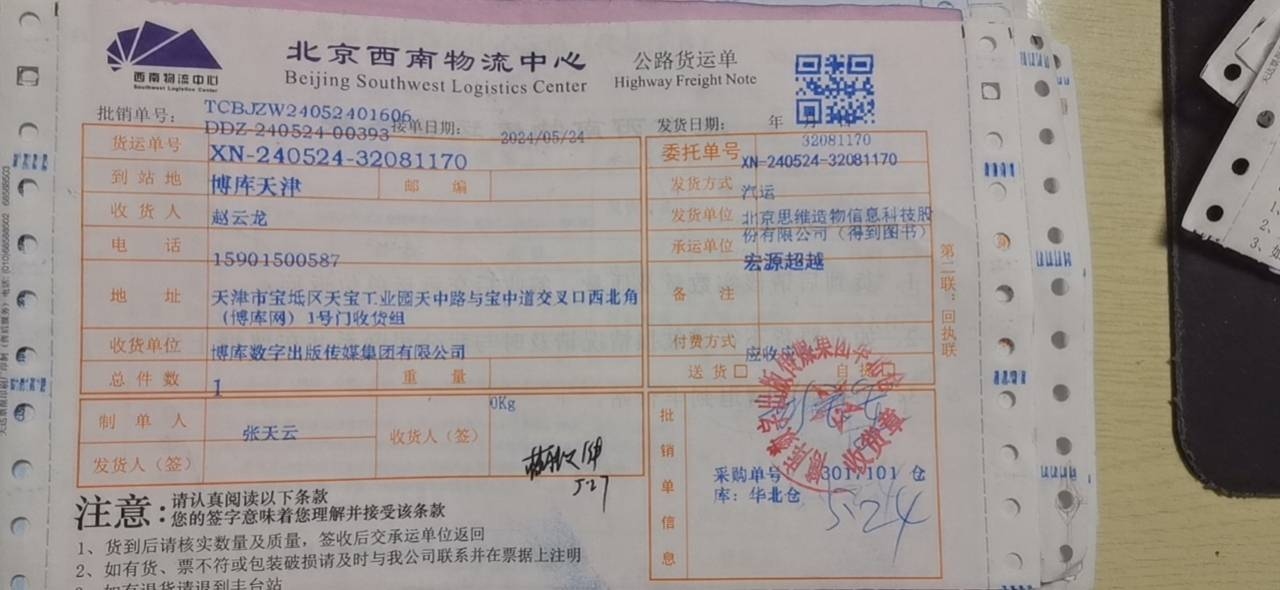 西南物流中心
Southwest Logistics Center
北京西南物流中心
Beijing Southwest Logistics Center
公路货运单
Highway Freight Note
批销单号：
TCBJZW24052401606
DDZ-240524-00393
接单日期：
2024/05/24
发货日期： 年 月
32081170
货运单号 XN-240524-32081170
委托单号 XN-240524-32081170
到站地 博库天津 邮编
发货方式 汽运
收货人 赵云龙
发货单位 北京思维造物信息科技股份有限公司（得到图书）
电话 15901500587
承运单位 宏源超越
地址 天津市宝坻区天宝工业园天中路与宝中道交叉口西北角
（博库网）1号门收货组
备注
收货单位 博库数字出版传媒集团有限公司
付费方式 应收
总件数 1 重量 0Kg
送货□ 自提
制单人 张天云
收货人（签）
发货人（签）
5.27
批销单信息
采购单号 3017101 仓
库：华北仓
收货章
5.24
第二联：回执联
注意：
请认真阅读以下条款
您的签字意味着您理解并接受该条款
1、货到后请核实数量及质量，签收后交承运单位返回
2、如有货、票不符或包装破损请及时与我公司联系并在票据上注明
3、如有退货请退到丰台站